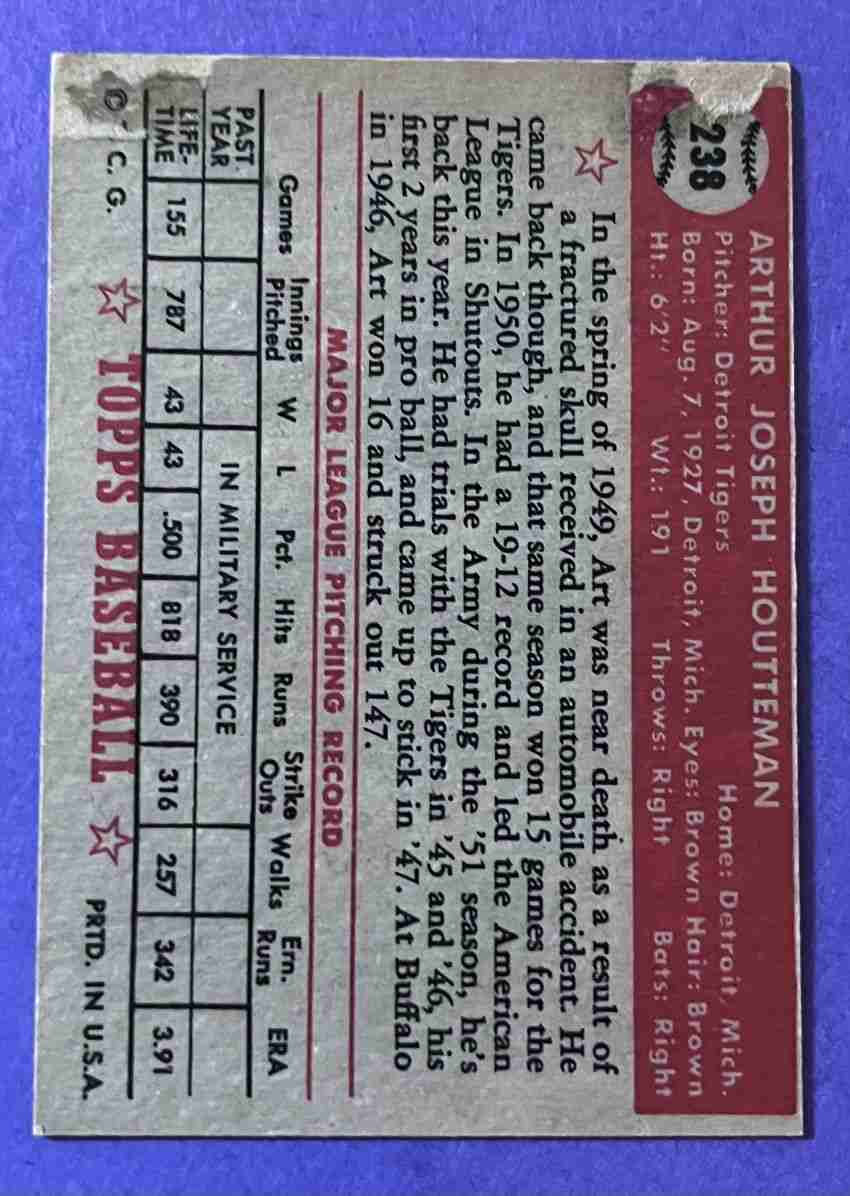 238
ARTHUR JOSEPH HOUTTEMAN
Pitcher: Detroit Tigers Home: Detroit, Mich.
Born: Aug. 7, 1927, Detroit, Mich. Eyes: Brown Hair: Brown
Ht.: 6'2" Wt.: 191 Throws: Right Bats: Right
In the spring of 1949, Art was near death as a result of
a fractured skull received in an automobile accident. He
came back though, and that same season won 15 games for the
Tigers. In 1950, he had a 19-12 record and led the American
League in Shutouts. In the Army during the '51 season, he's
back this year. He had trials with the Tigers in '45 and '46, his
first 2 years in pro ball, and came up to stick in '47. At Buffalo
in 1946, Art won 16 and struck out 147.
MAJOR LEAGUE PITCHING RECORD
Games Innings Pitched W L Pct. Hits Runs Strike Outs Walks Ern. Runs ERA
PAST YEAR IN MILITARY SERVICE
LIFE-TIME 155 787 43 43 .500 818 390 316 257 342 3.91
© C. G. TOPPS BASEBALL PRTD. IN U.S.A.